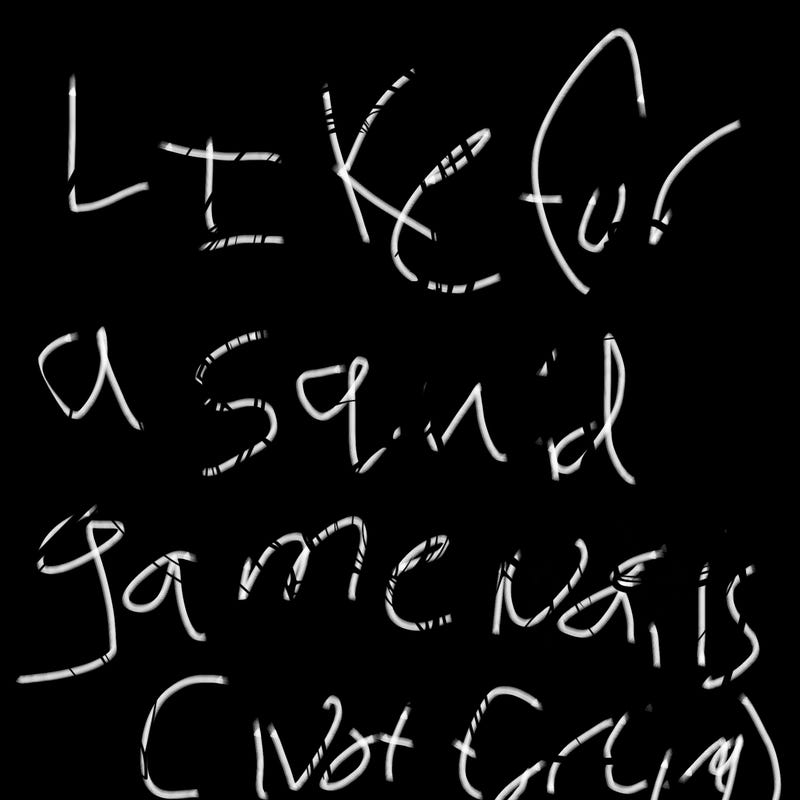 LIKe fur
a squid
game Nails
(Not